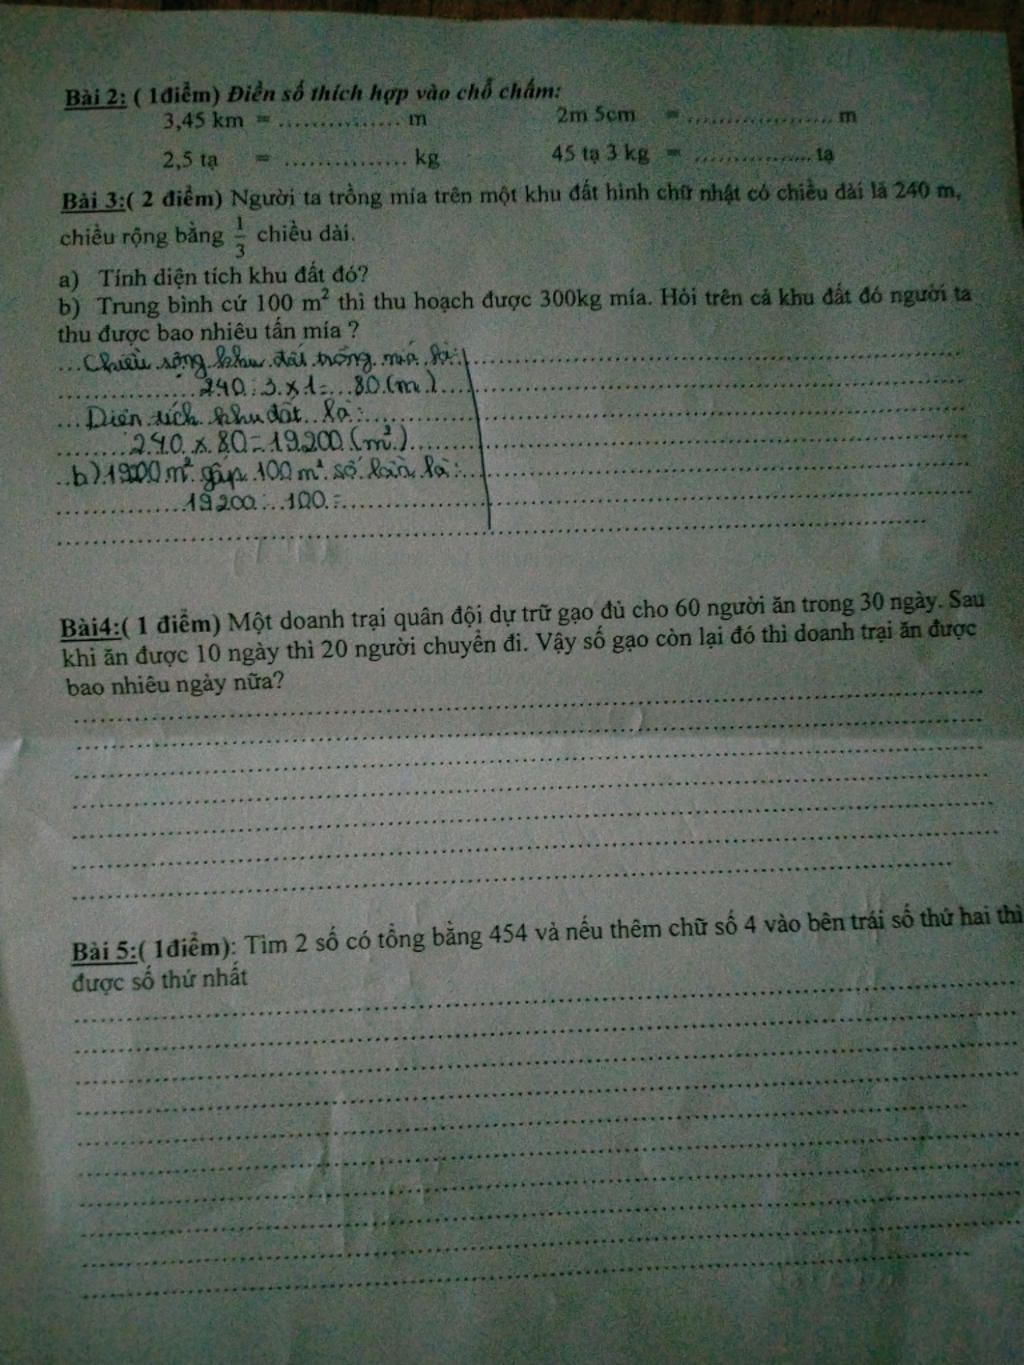 Bài 2: ( 1điểm) Điền số thích hợp vào chỗ chấm:
3,45 km = ................ m 2m 5cm = ................... m
2,5 tạ = ................ kg 45 tạ 3 kg = ............... tạ
Bài 3:( 2 điểm) Người ta trồng mía trên một khu đất hình chữ nhật có chiều dài là 240 m,
chiều rộng bằng 1/3 chiều dài.
a) Tính diện tích khu đất đó?
b) Trung bình cứ 100 m² thì thu hoạch được 300kg mía. Hỏi trên cả khu đất đó người ta
thu được bao nhiêu tấn mía ?
Chiều rộng khu đất trồng mía là:
240 : 3 x 1 = 80 (m)
Diện tích khu đất là:
240 x 80 = 19200 (m²)
b) 19200 m² gấp 100 m² số lần là:
19200 : 100 =
Bài4:( 1 điểm) Một doanh trại quân đội dự trữ gạo đủ cho 60 người ăn trong 30 ngày. Sau
khi ăn được 10 ngày thì 20 người chuyển đi. Vậy số gạo còn lại đó thì doanh trại ăn được
bao nhiêu ngày nữa?
Bài 5:( 1điểm): Tìm 2 số có tổng bằng 454 và nếu thêm chữ số 4 vào bên trái số thứ hai thì
được số thứ nhất